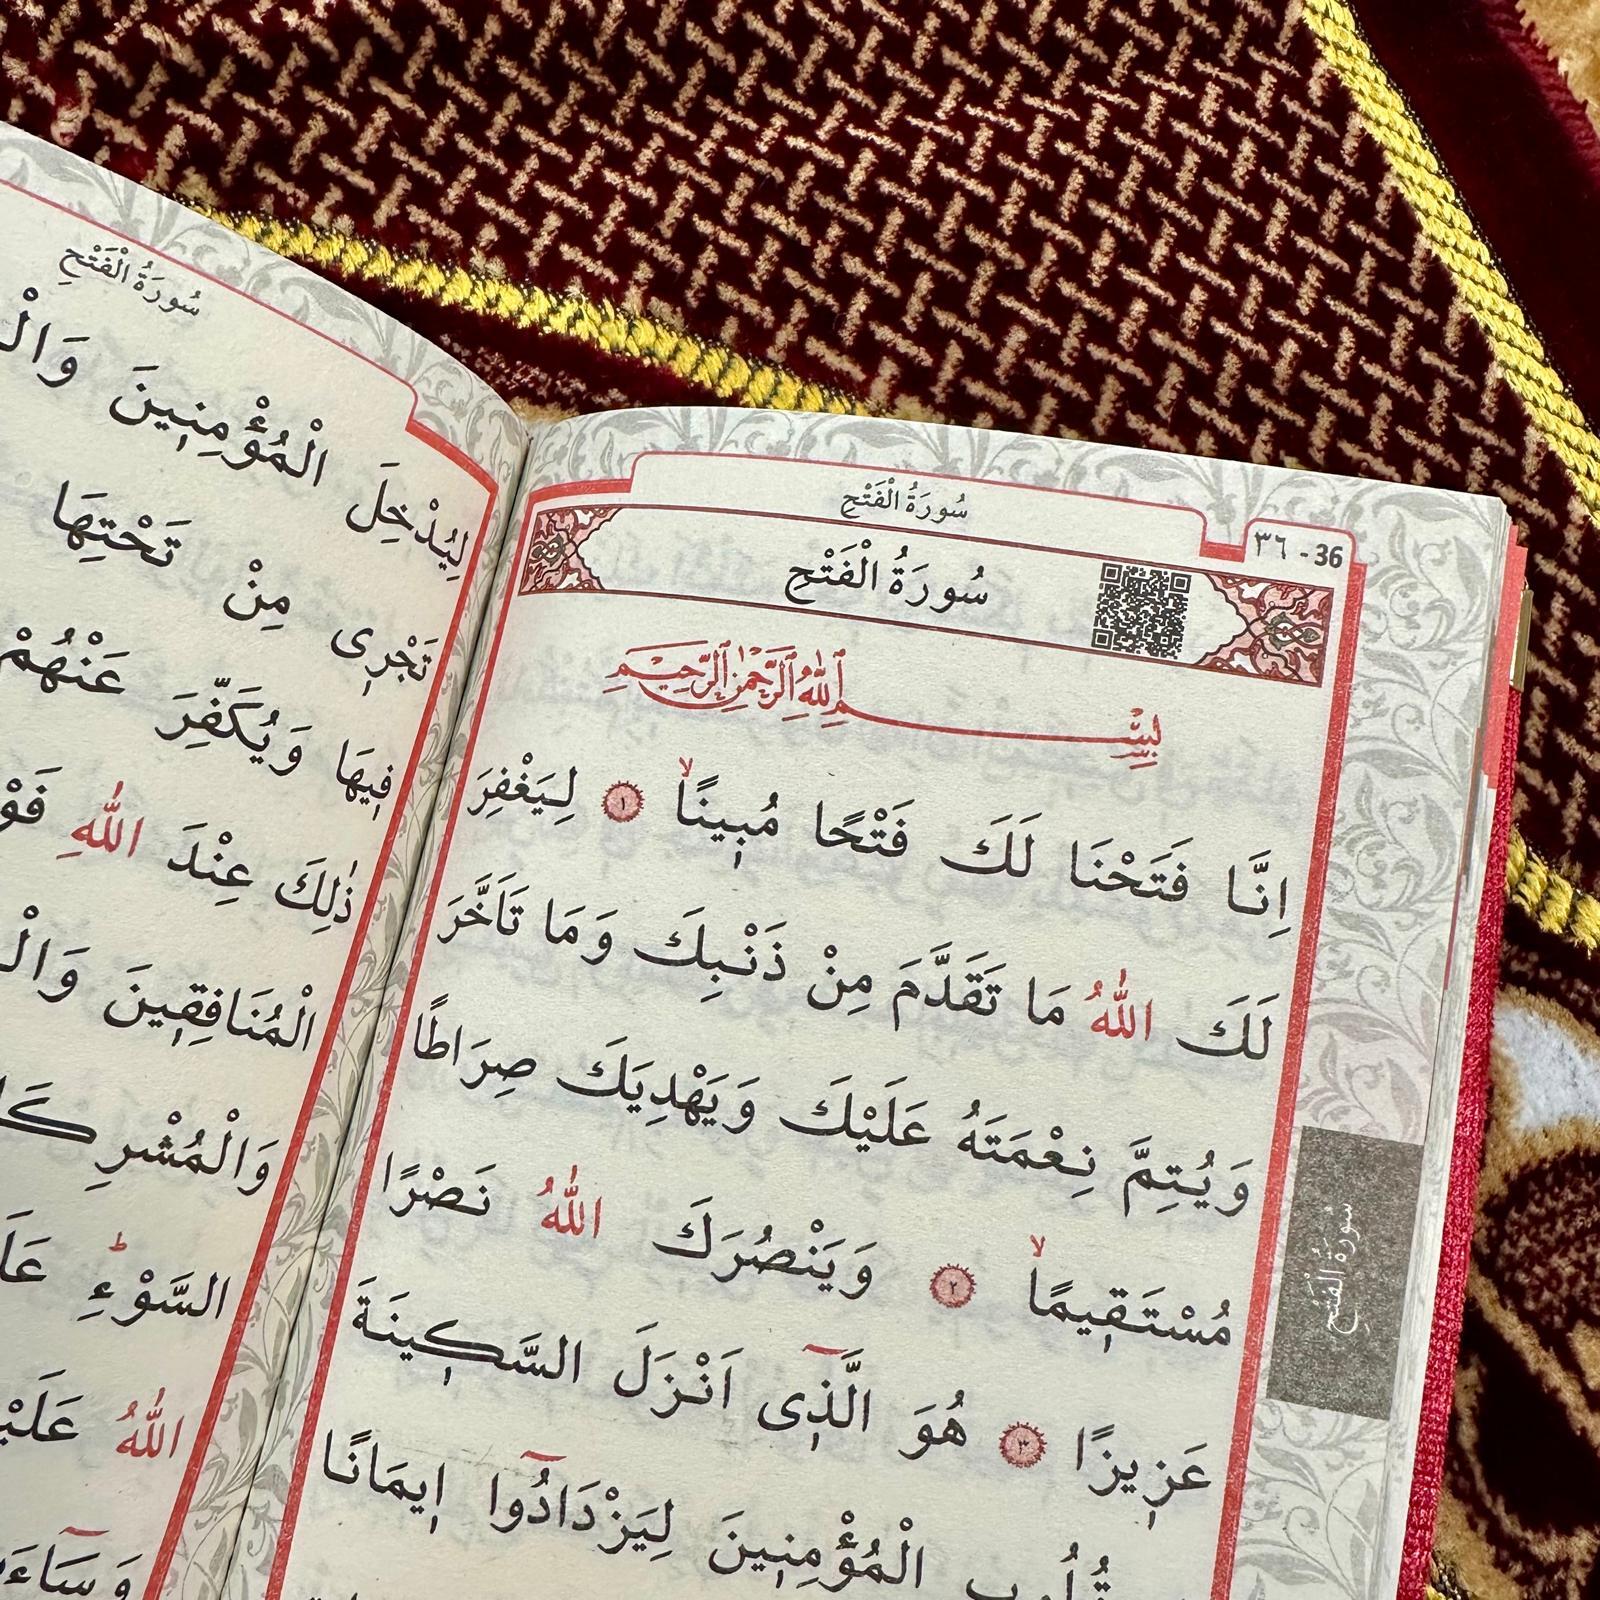 سُورَةُ الْفَتْحِ
٣٦ - 36
سُورَةُ الْفَتْحِ
بِسْمِ اللّٰهِ الرَّحْمٰنِ الرَّحِيمِ
اِنَّا فَتَحْنَا لَكَ فَتْحًا مُبٖينًاۙ ١ لِيَغْفِرَ
لَكَ اللّٰهُ مَا تَقَدَّمَ مِنْ ذَنْبِكَ وَمَا تَاَخَّرَ
وَيُتِمَّ نِعْمَتَهُ عَلَيْكَ وَيَهْدِيَكَ صِرَاطًا
مُسْتَقٖيمًاۙ ٢ وَيَنْصُرَكَ اللّٰهُ نَصْرًا
عَزٖيزًا ٣ هُوَ الَّذٖٓى اَنْزَلَ السَّكٖينَةَ
قُلُوبِ الْمُؤْمِنٖينَ لِيَزْدَادُٓوا اٖيمَانًا
سُورَةُ الْفَتْحِ
سُورَةُ الْفَتْحِ
لِيُدْخِلَ الْمُؤْمِنٖينَ
تَجْرٖى مِنْ تَحْتِهَا
فٖيهَا وَيُكَفِّرَ عَنْهُمْ
ذٰلِكَ عِنْدَ اللّٰهِ
الْمُنَافِقٖينَ
السَّوْءِۚ
اللّٰهُ